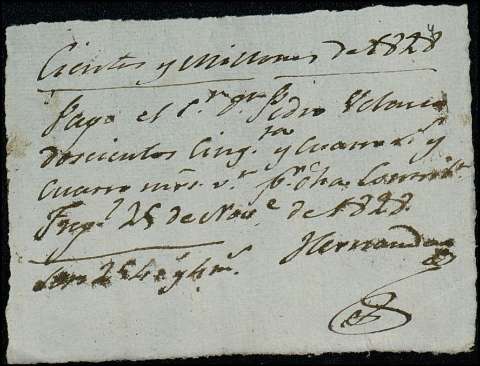 Cientos y Millones de 1828
Pagó el S.r Dn Pedro Velarde
doscientos Cinq.ta y cuatro r.s y
cuatro mrs v.n p.r dha
25 de Nov.e de 1828
Hernandez